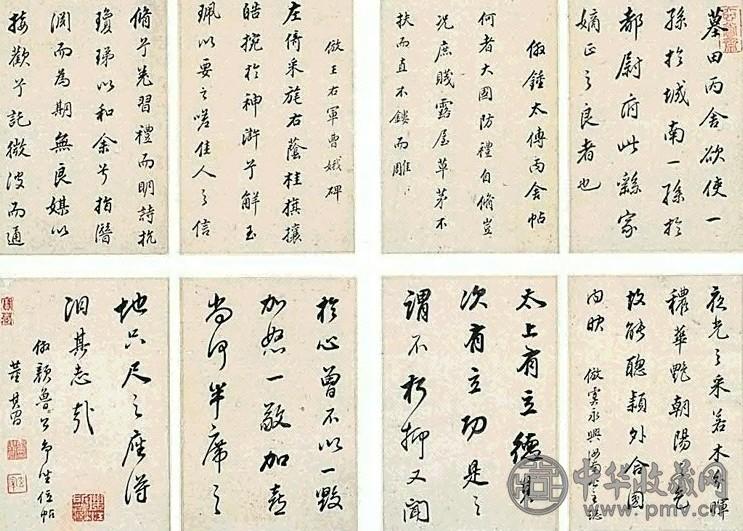 墓田丙舍欲使一
孫於城南一孫於
都尉府此繇家
嫡正之良者也
倣鍾太傅丙舍帖
何者大國防禮自脩豈
况庶賤露屋草茅不
扶而直不鏤而雕
倣王右軍曹娥碑
左倚采旄右蔭桂旗攘
皓捥於神滸兮解玉
珮以要之嗟佳人之信
脩兮羌習禮而明詩抗
瓊珶以和余兮指潛
淵而為期無良媒以
接歡兮託微波而通
夜光之采若木分暉
穠華艷朝陽
故能聰穎外合國
内映 倣虞永興汝南公主誌
太上有立德其
次有立功是之
謂不朽抑又聞
於心曾不以一毀
加怒一敬加喜
尚何半席之
地只尺之座得
汩其志哉
倣顏魯公争坐位帖
董其昌
中华收藏网
www.pmv.cn